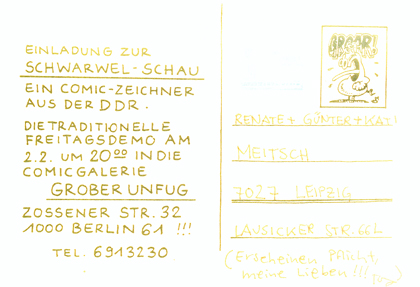 EINLADUNG ZUR
SCHWARWEL-SCHAU
EIN COMIC-ZEICHNER
AUS DER DDR.
DIE TRADITIONELLE
FREITAGSDEMO AM
2.2. UM 20⁰⁰ IN DIE
COMICGALERIE
GROBER UNFUG
ZOSSENER STR. 32
1000 BERLIN 61 !!!
TEL. 6913230
RENATE + GÜNTER + KATI
MEITSCH
7027 LEIPZIG
LAUSICKER STR. 66L
(Erscheinen Pflicht,
meine Lieben!!!